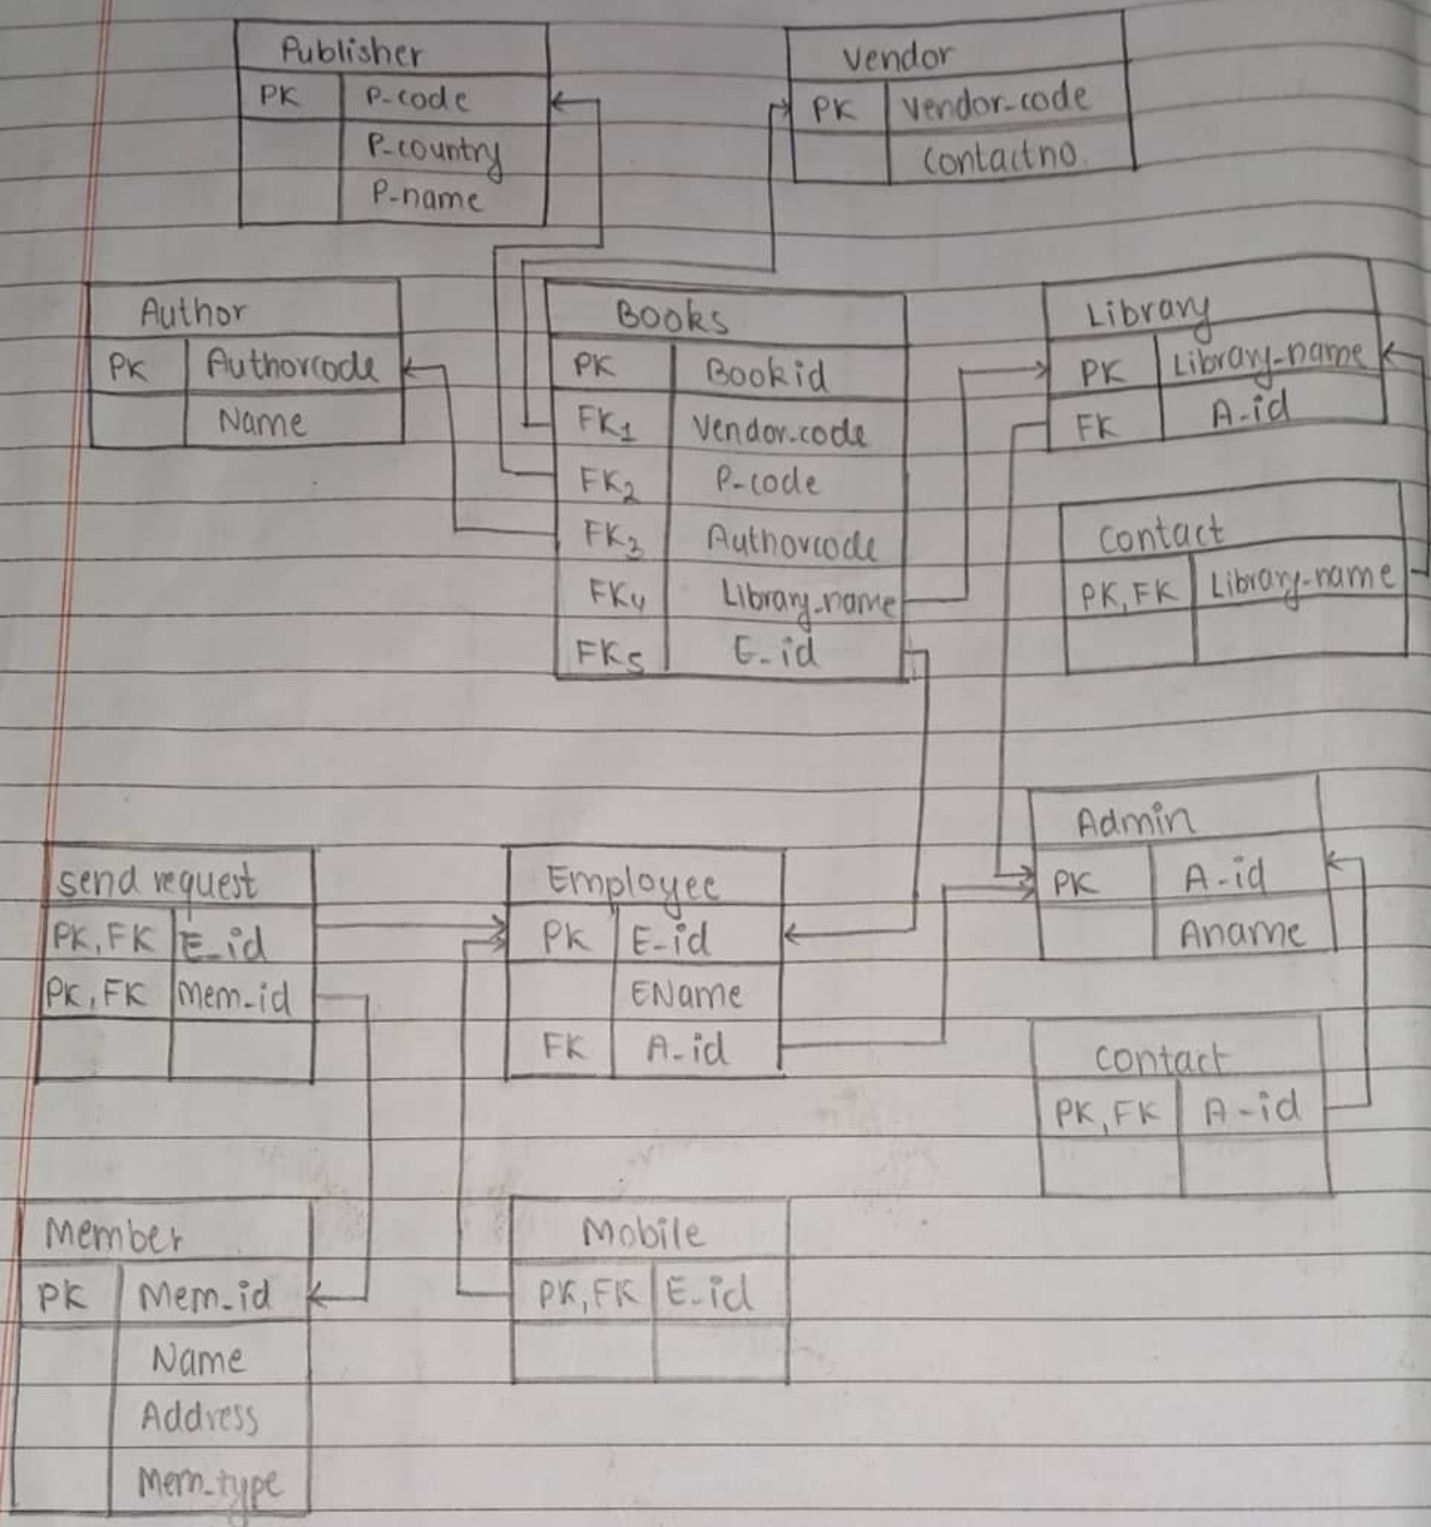 Publisher
PK P-code
P-country
P-name
Vendor
PK Vendor-code
Contactno.
Author
PK Authorcode
Name
Books
PK Bookid
FK1 Vendor-code
FK2 P-code
FK3 Authorcode
FK4 Library-name
FK5 E-id
Library
PK Library-name
FK A-id
Contact
PK, FK Library-name
Admin
PK A-id
Aname
send request
PK, FK E-id
PK, FK Mem-id
Employee
PK E-id
EName
FK A-id
Contact
PK, FK A-id
Member
PK Mem-id
Name
Address
Mem-type
Mobile
PK, FK E-id